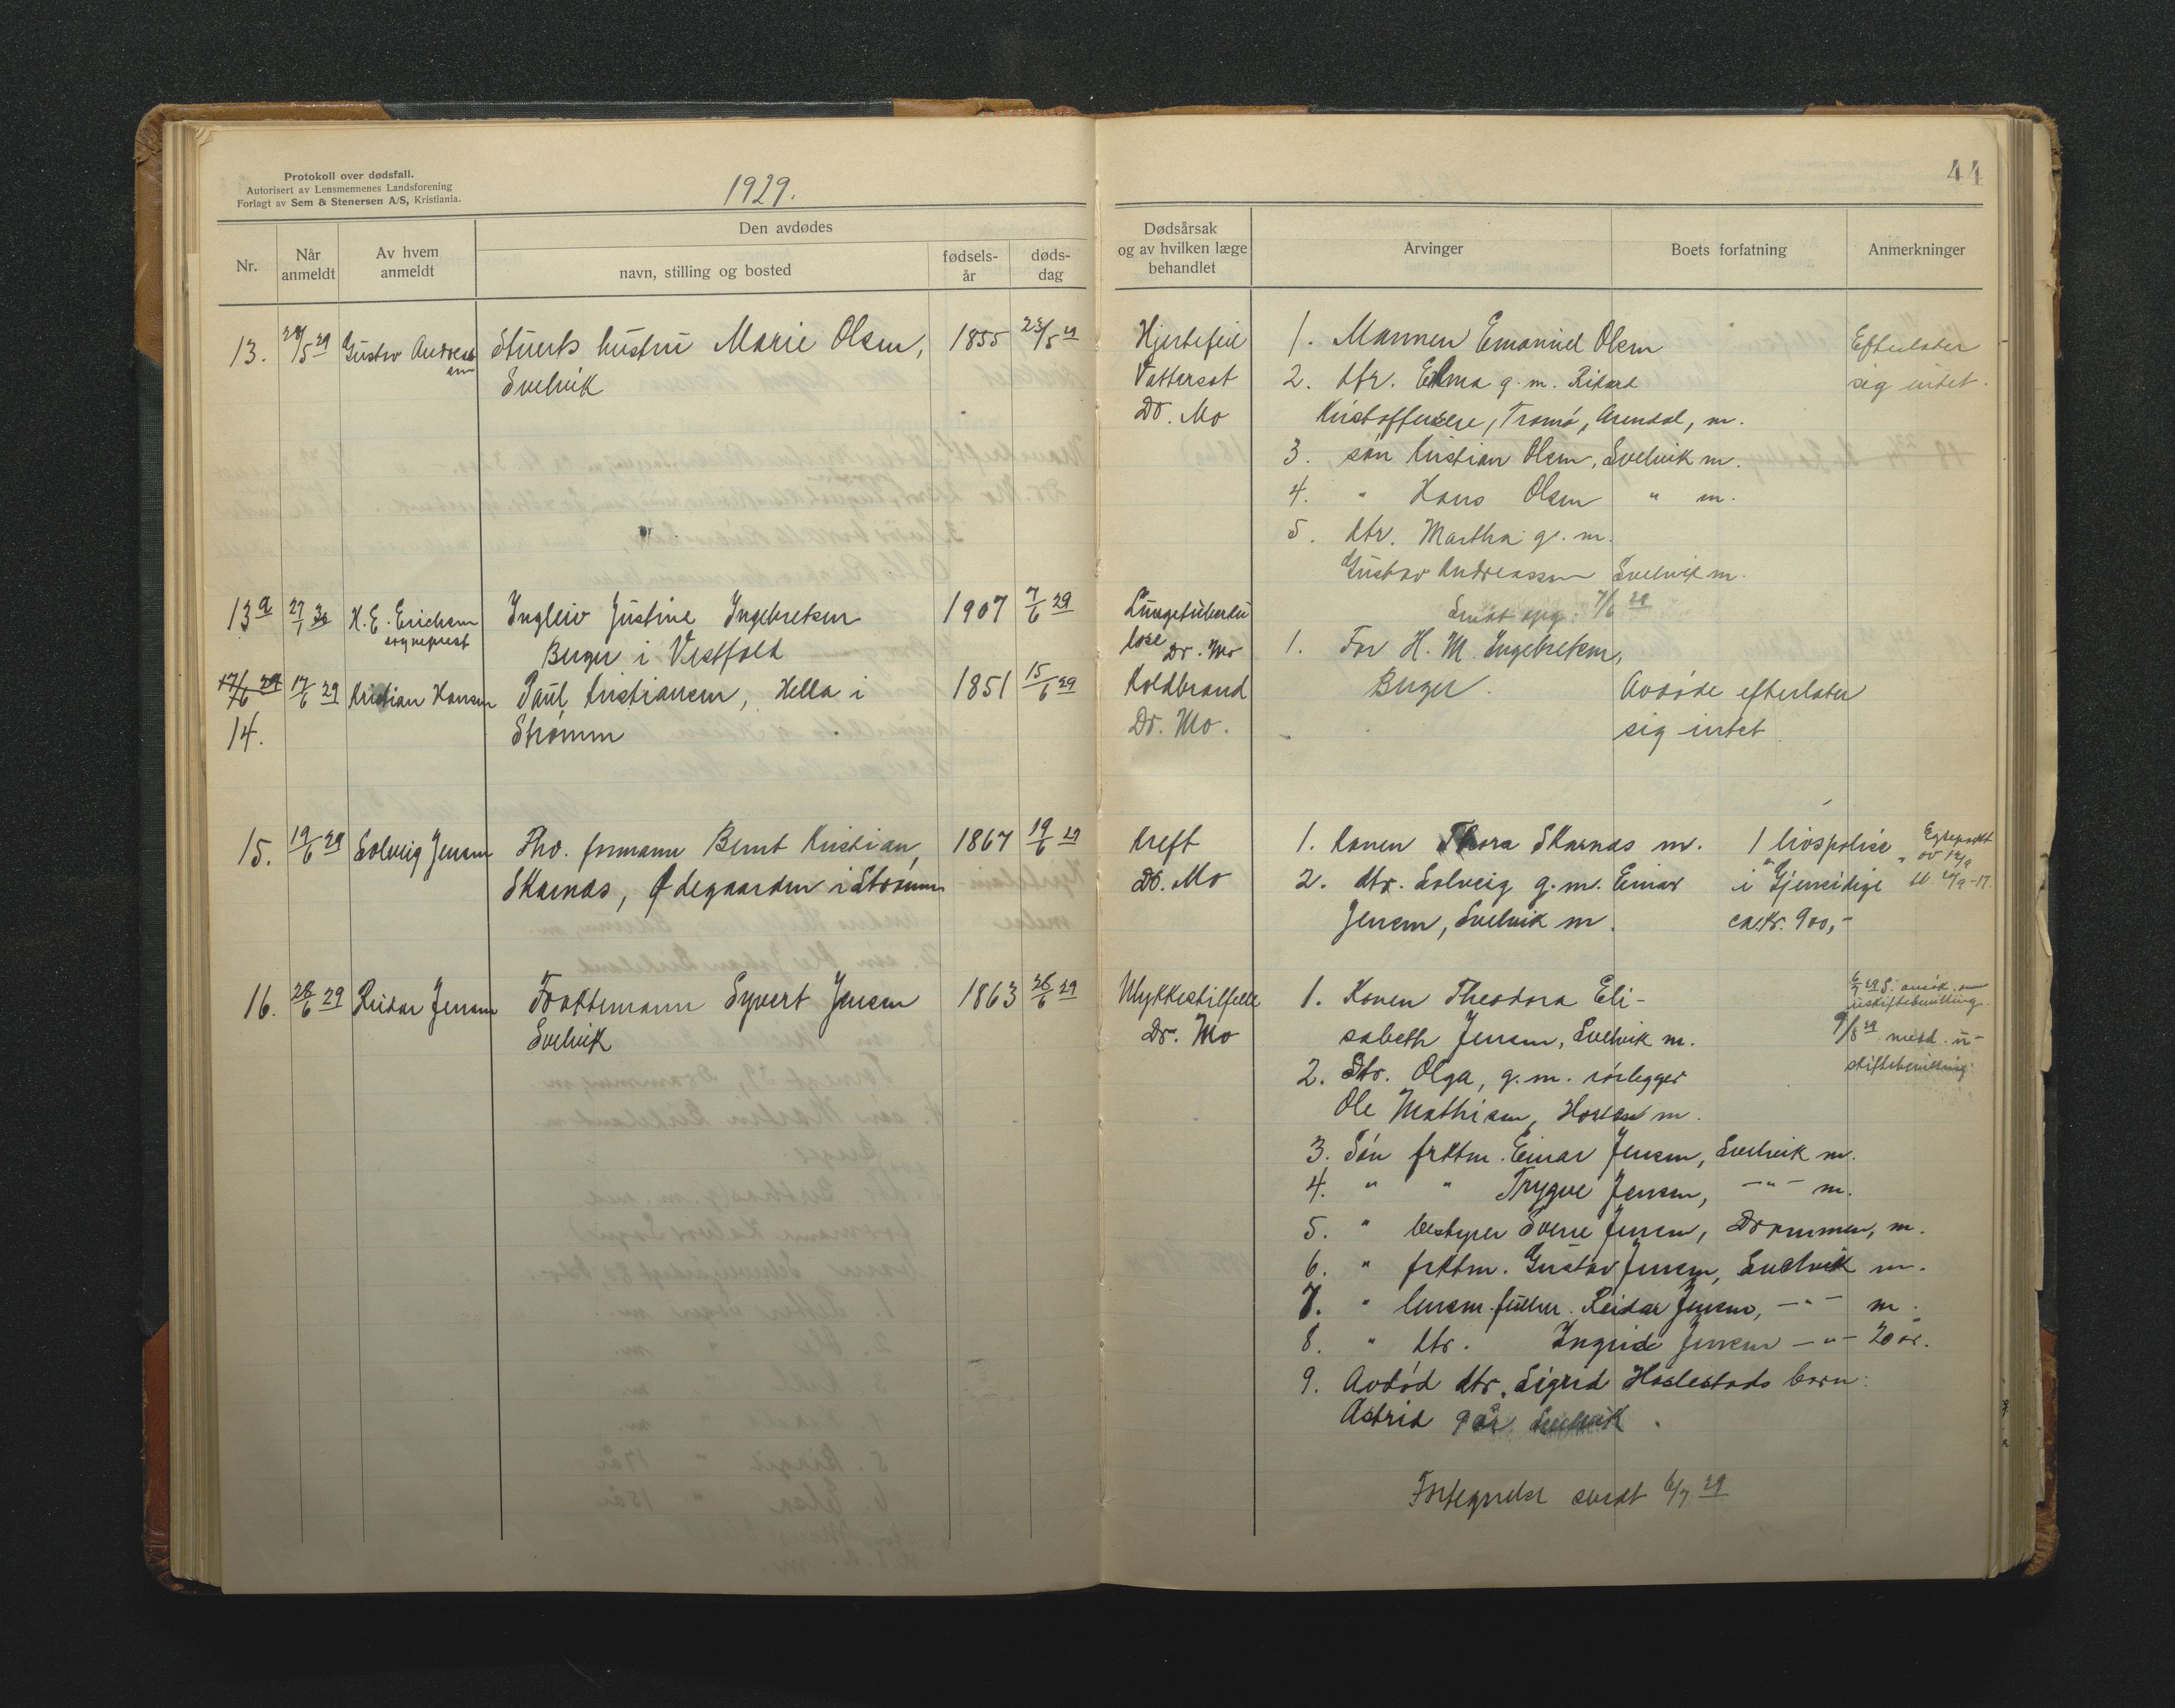 44
Protokoll over dødsfall.
Autorisert av Lensmennenes Landsforening
Forlagt av Sem & Stenersen A/S, Kristiania.
1929.
Nr.
Når anmeldt
Av hvem anmeldt
Den avdødes
navn, stilling og bosted
fødselsår
dødsdag
Dødsårsak og av hvilken læge behandlet
Arvinger
Boets forfatning
Anmerkninger
13. 28/5 29 Gustav Andreassen
Stuerts hustru Marie Olsen, 1855 23/5 29
Svelvik
Hjertefeil
Vattersot
Dr. Mo
1. Mannen Emanuel Olsen
2. dtr. Elma g. m. Rikard
Kristoffersen, Tromö, Arendal, m.
3. sön Kristian Olsen, Svelvik m.
4. " Hans Olsen " m.
5. dtr. Martha g. m.
Gustav Andreassen Svelvik m.
Sendt opg. 7/6 29
Efterlater
sig intet.
13 a 27/1 30 H. E. Erichsen
sogneprest
Ingleiv Justine Ingebretsen 1907 7/6 29
Berger i Vestfold
Lungetuberku
lose Dr. Mo
1. Far H. M. Ingebretsen,
Berger.
17/6 29 17/6 29 Kristian Hansen
14.
Paul Kristiansen, Hella i 1851 15/6 29
Strömm
Koldbrand
Dr. Mo.
Avdöde efterlater
sig intet
15. 19/6 29 Solveig Jensen
Fhv. formann Bernt Kristian 1867 19/6 29
Skarnas, Ødegaarden i Strömm
Kreft
Dr. Mo
1. Konen Thora Skarnas m.
2. dtr. Solveig g. m. Einar
Jensen, Svelvik m.
1 livspolise
i "Gjensidige"
ca. kr. 900,-
Egtepakt
av 12/9
16. 28/6 29 Reidar Jensen
Fraktemann Syvert Jensen 1863 26/6 29
Svelvik
Ulykkestilfelle
Dr. Mo
1. Konen Theodora Eli-
sabeth Jensen, Svelvik m.
2. Dtr. Olga, g. m. rörlegger
Ole Mathisen, Horten m.
3. Sön frktm. Einar Jensen, Svelvik m.
4. " " Trygve Jensen, -"- m.
5. " bestyrer Sverre Jensen, Drammen, m.
6. " frktm. Gustav Jensen, Svelvik m.
7. " lensm. fullm. Reidar Jensen, -"- m.
8. " dtr. Ingrid Jensen -"- 20 år.
9. Avdöd dtr. Sigrid Haslestads barn:
Astrid 9 år Svelvik.
Fortegnelse sendt 6/7 29
6/7 29 S. ansök. om
uskiftebevilling.
9/8 29 medd. u-
skiftebevilling.